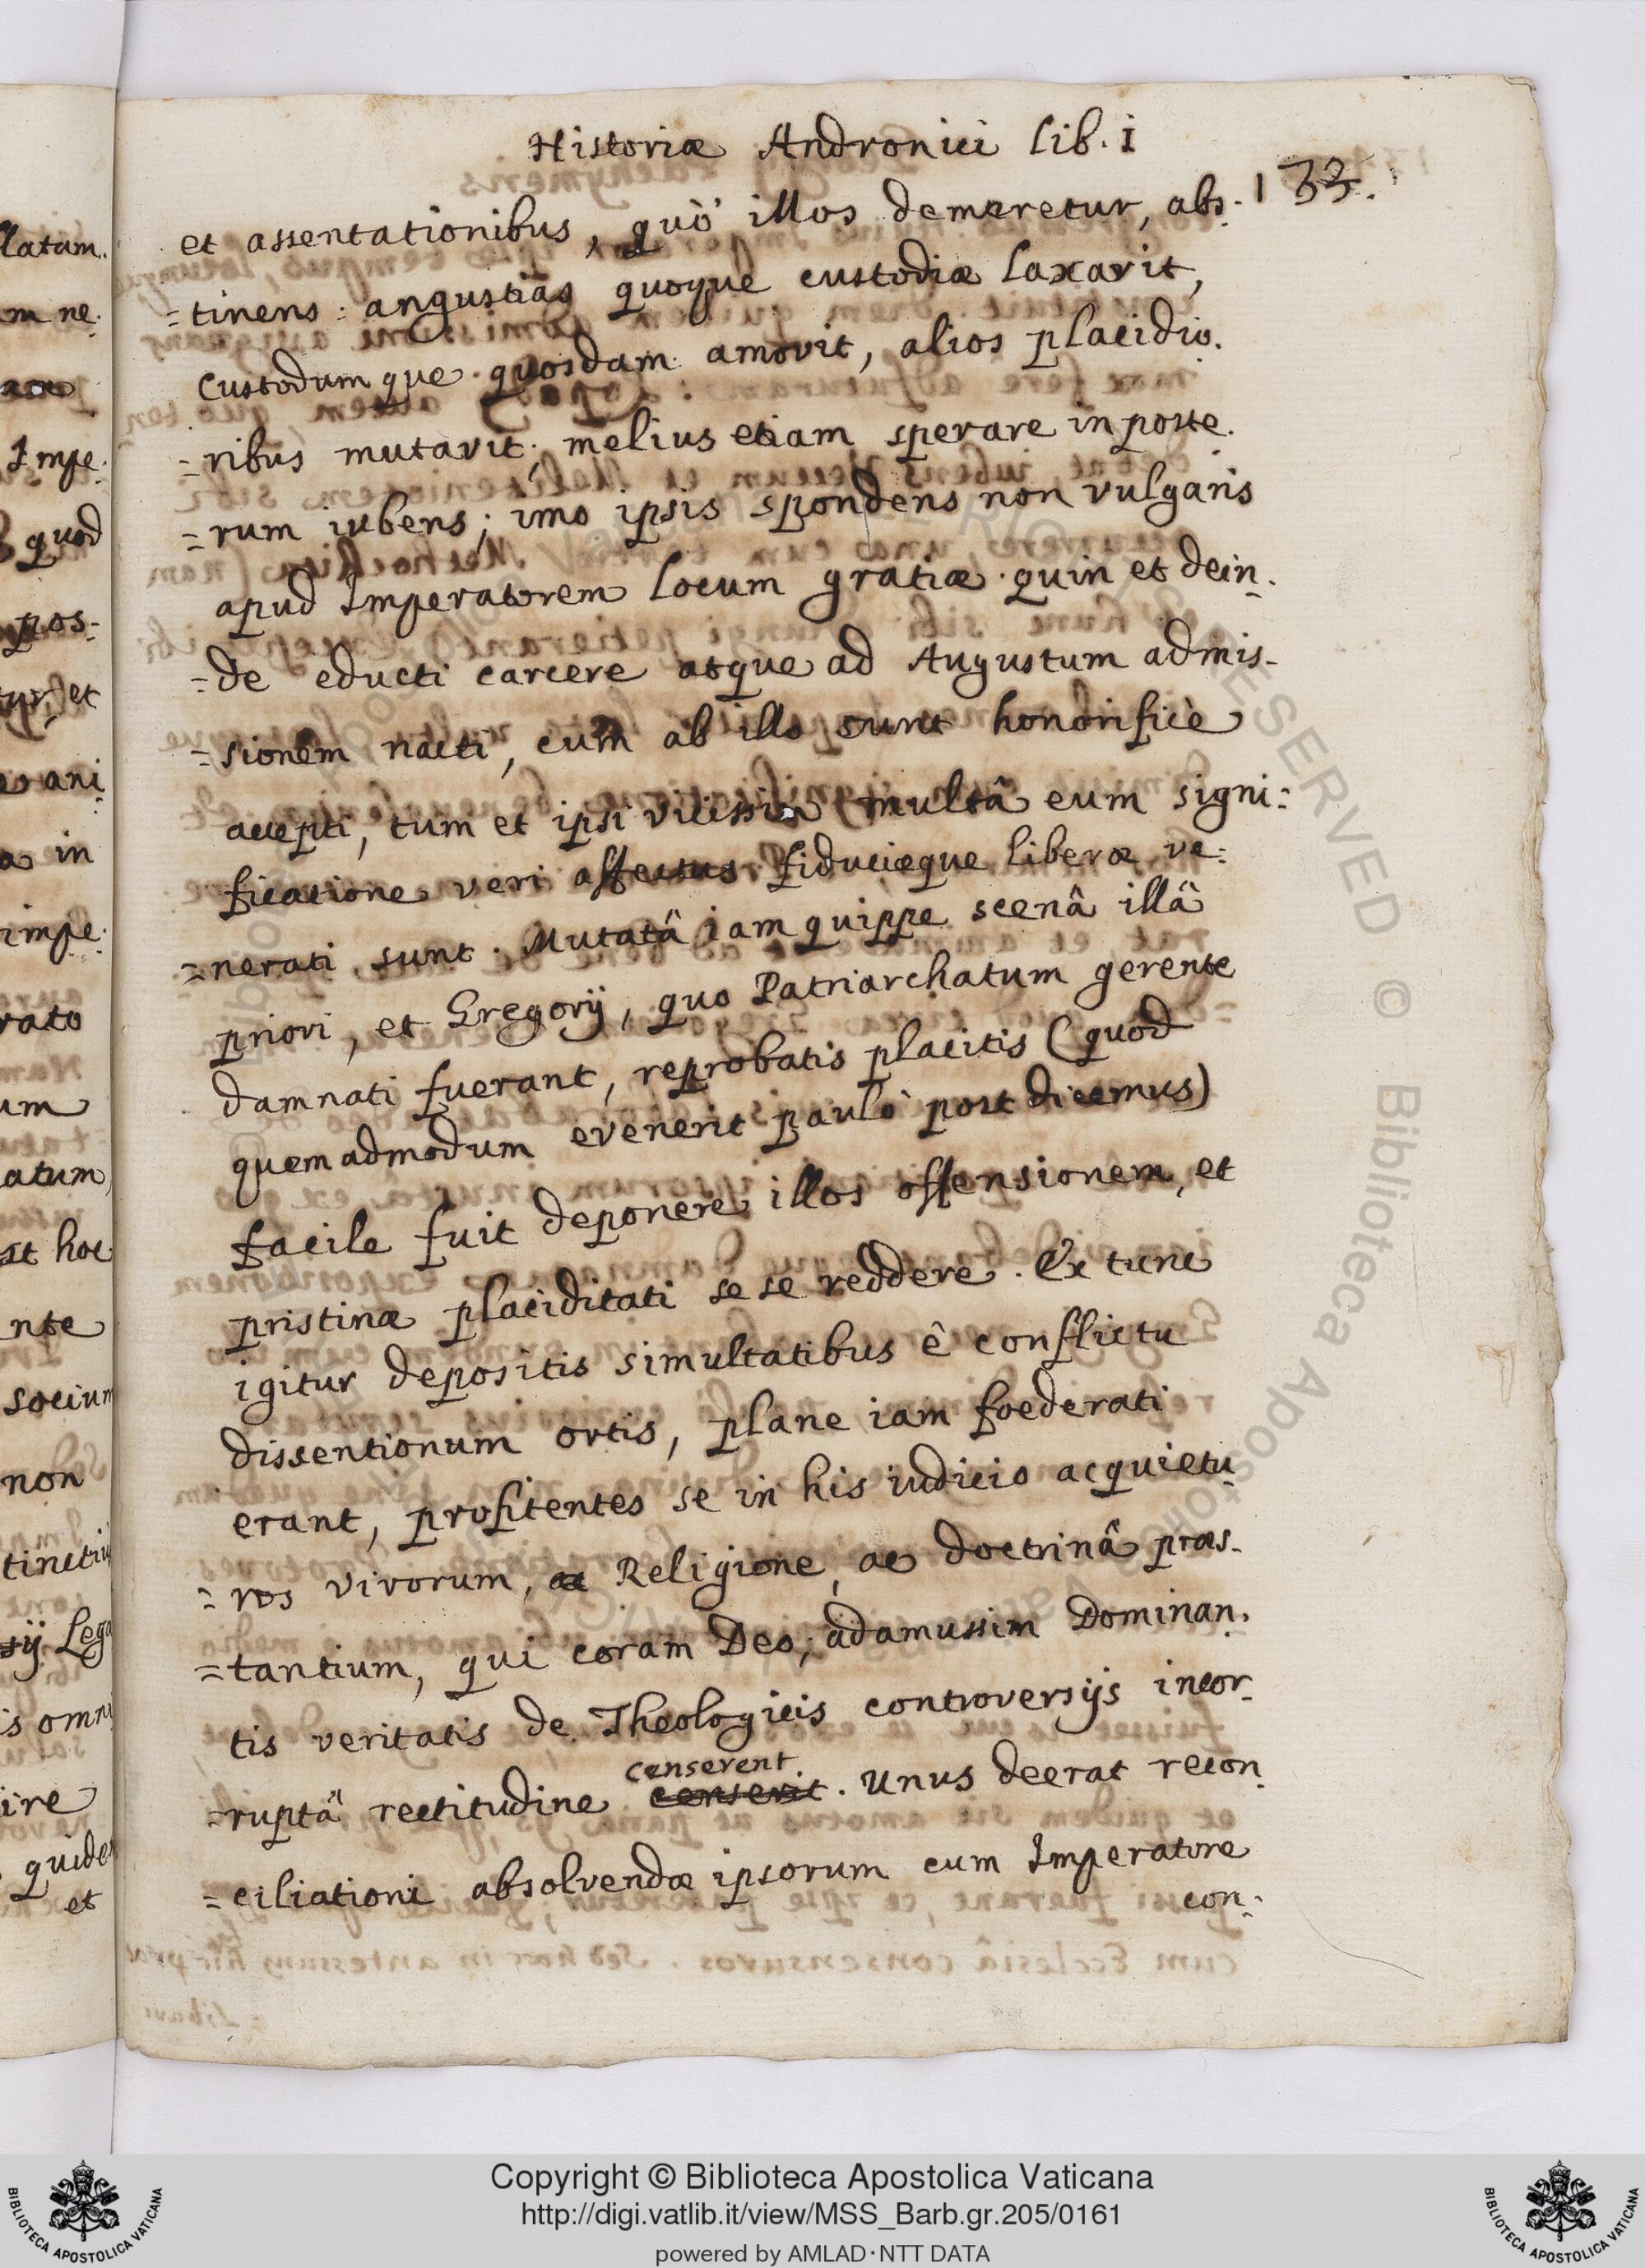 Historiæ Andronici Lib. I
133.
et assentationibus, quò illos demeretur, abs-
=tinens: angustias quoque custodiæ laxavit,
custodumque quosdam amovit, alios placidio-
=ribus mutavit; melius etiam sperare in poste-
=rum iubens; imo ipsis spondens non vulgaris
apud Imperatorem locum gratiæ. quin et dein-
=de educti carcere atque ad Augustum admis-
=sionem nacti, cum ab illo sunt honorificè
accepti, tum et ipsi vicissim multâ eum signi-
ficatione veri affectus fiduciæque liberæ ve-
=nerati sunt. Mutatâ iam quippe scenâ illâ
priori, et Gregorij, quo Patriarchatum gerente
damnati fuerant, reprobatis placitis (quod
quemadmodum evenerit paulò post dicemus)
facile fuit deponere illos offensionem, et
pristinæ placiditati se se reddere. Ex tunc
igitur depositis simultatibus ê conflictu
dissentionum ortis, plane iam foederati
erant, profitentes se in his iudicio acquietu-
=ros virorum, ac Religione, ac doctrinâ præs-
=tantium, qui coram Deo, adamussim Dominan-
tis veritatis de Theologicis controversijs incor-
=ruptâ rectitudine censerit censerent. Unus deerat recon-
=ciliationi absolvendæ ipsorum cum Imperatore
con-
latam
m ne
Impe
quod
pos-
et
ani
in
impe
rato
um
atum,
st hoc
nte
socium
non
sij Lega
is omni
ire
quidem
et
Copyright © Biblioteca Apostolica Vaticana
http://digi.vatlib.it/view/MSS_Barb.gr.205/0161
powered by AMLAD·NTT DATA
BIBLIOTECA APOSTOLICA VATICANA
BIBLIOTECA APOSTOLICA VATICANA